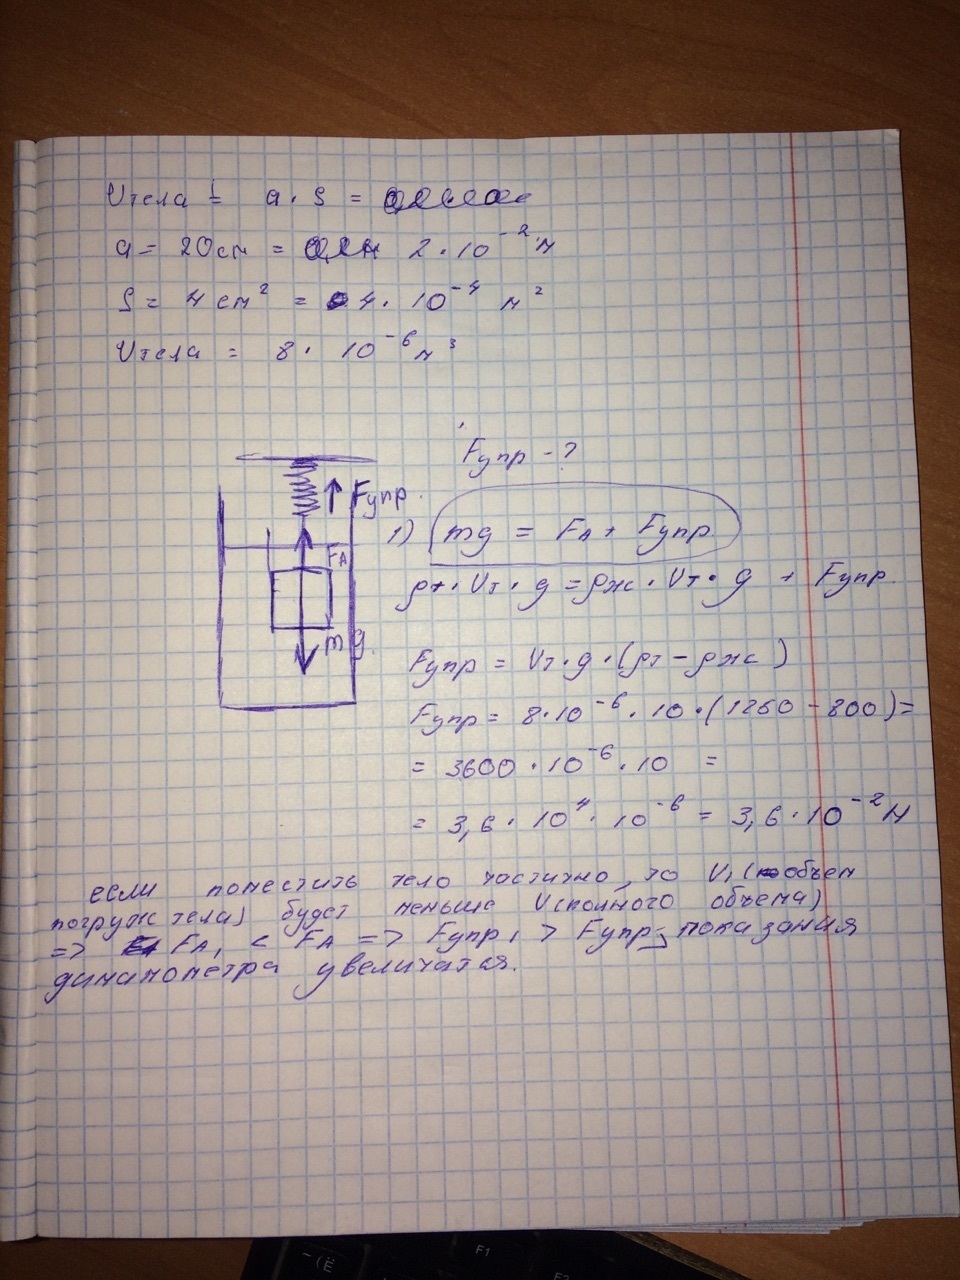 Vтела = a · S =
a = 20см = 2 · 10⁻² м
S = 4 см² = 4 · 10⁻⁴ м²
Vтела = 8 · 10⁻⁶ м³
Fупр - ?
Fупр.
FA
mg
1) mg = FA + Fупр.
ρт · Vт · g = ρж · Vт · g + Fупр.
Fупр = Vт · g · (ρт - ρж)
Fупр = 8 · 10⁻⁶ · 10 · (1260 - 800) =
= 3600 · 10⁻⁶ · 10 =
= 3,6 · 10⁴ · 10⁻⁶ = 3,6 · 10⁻² Н
если поместить тело частично, то V₁ (объем
погруж тела) будет меньше V (полного объема)
=> FA₁ < FA => Fупр₁ > Fупр; показания
динамометра увеличатся.
F1
F2
Ё